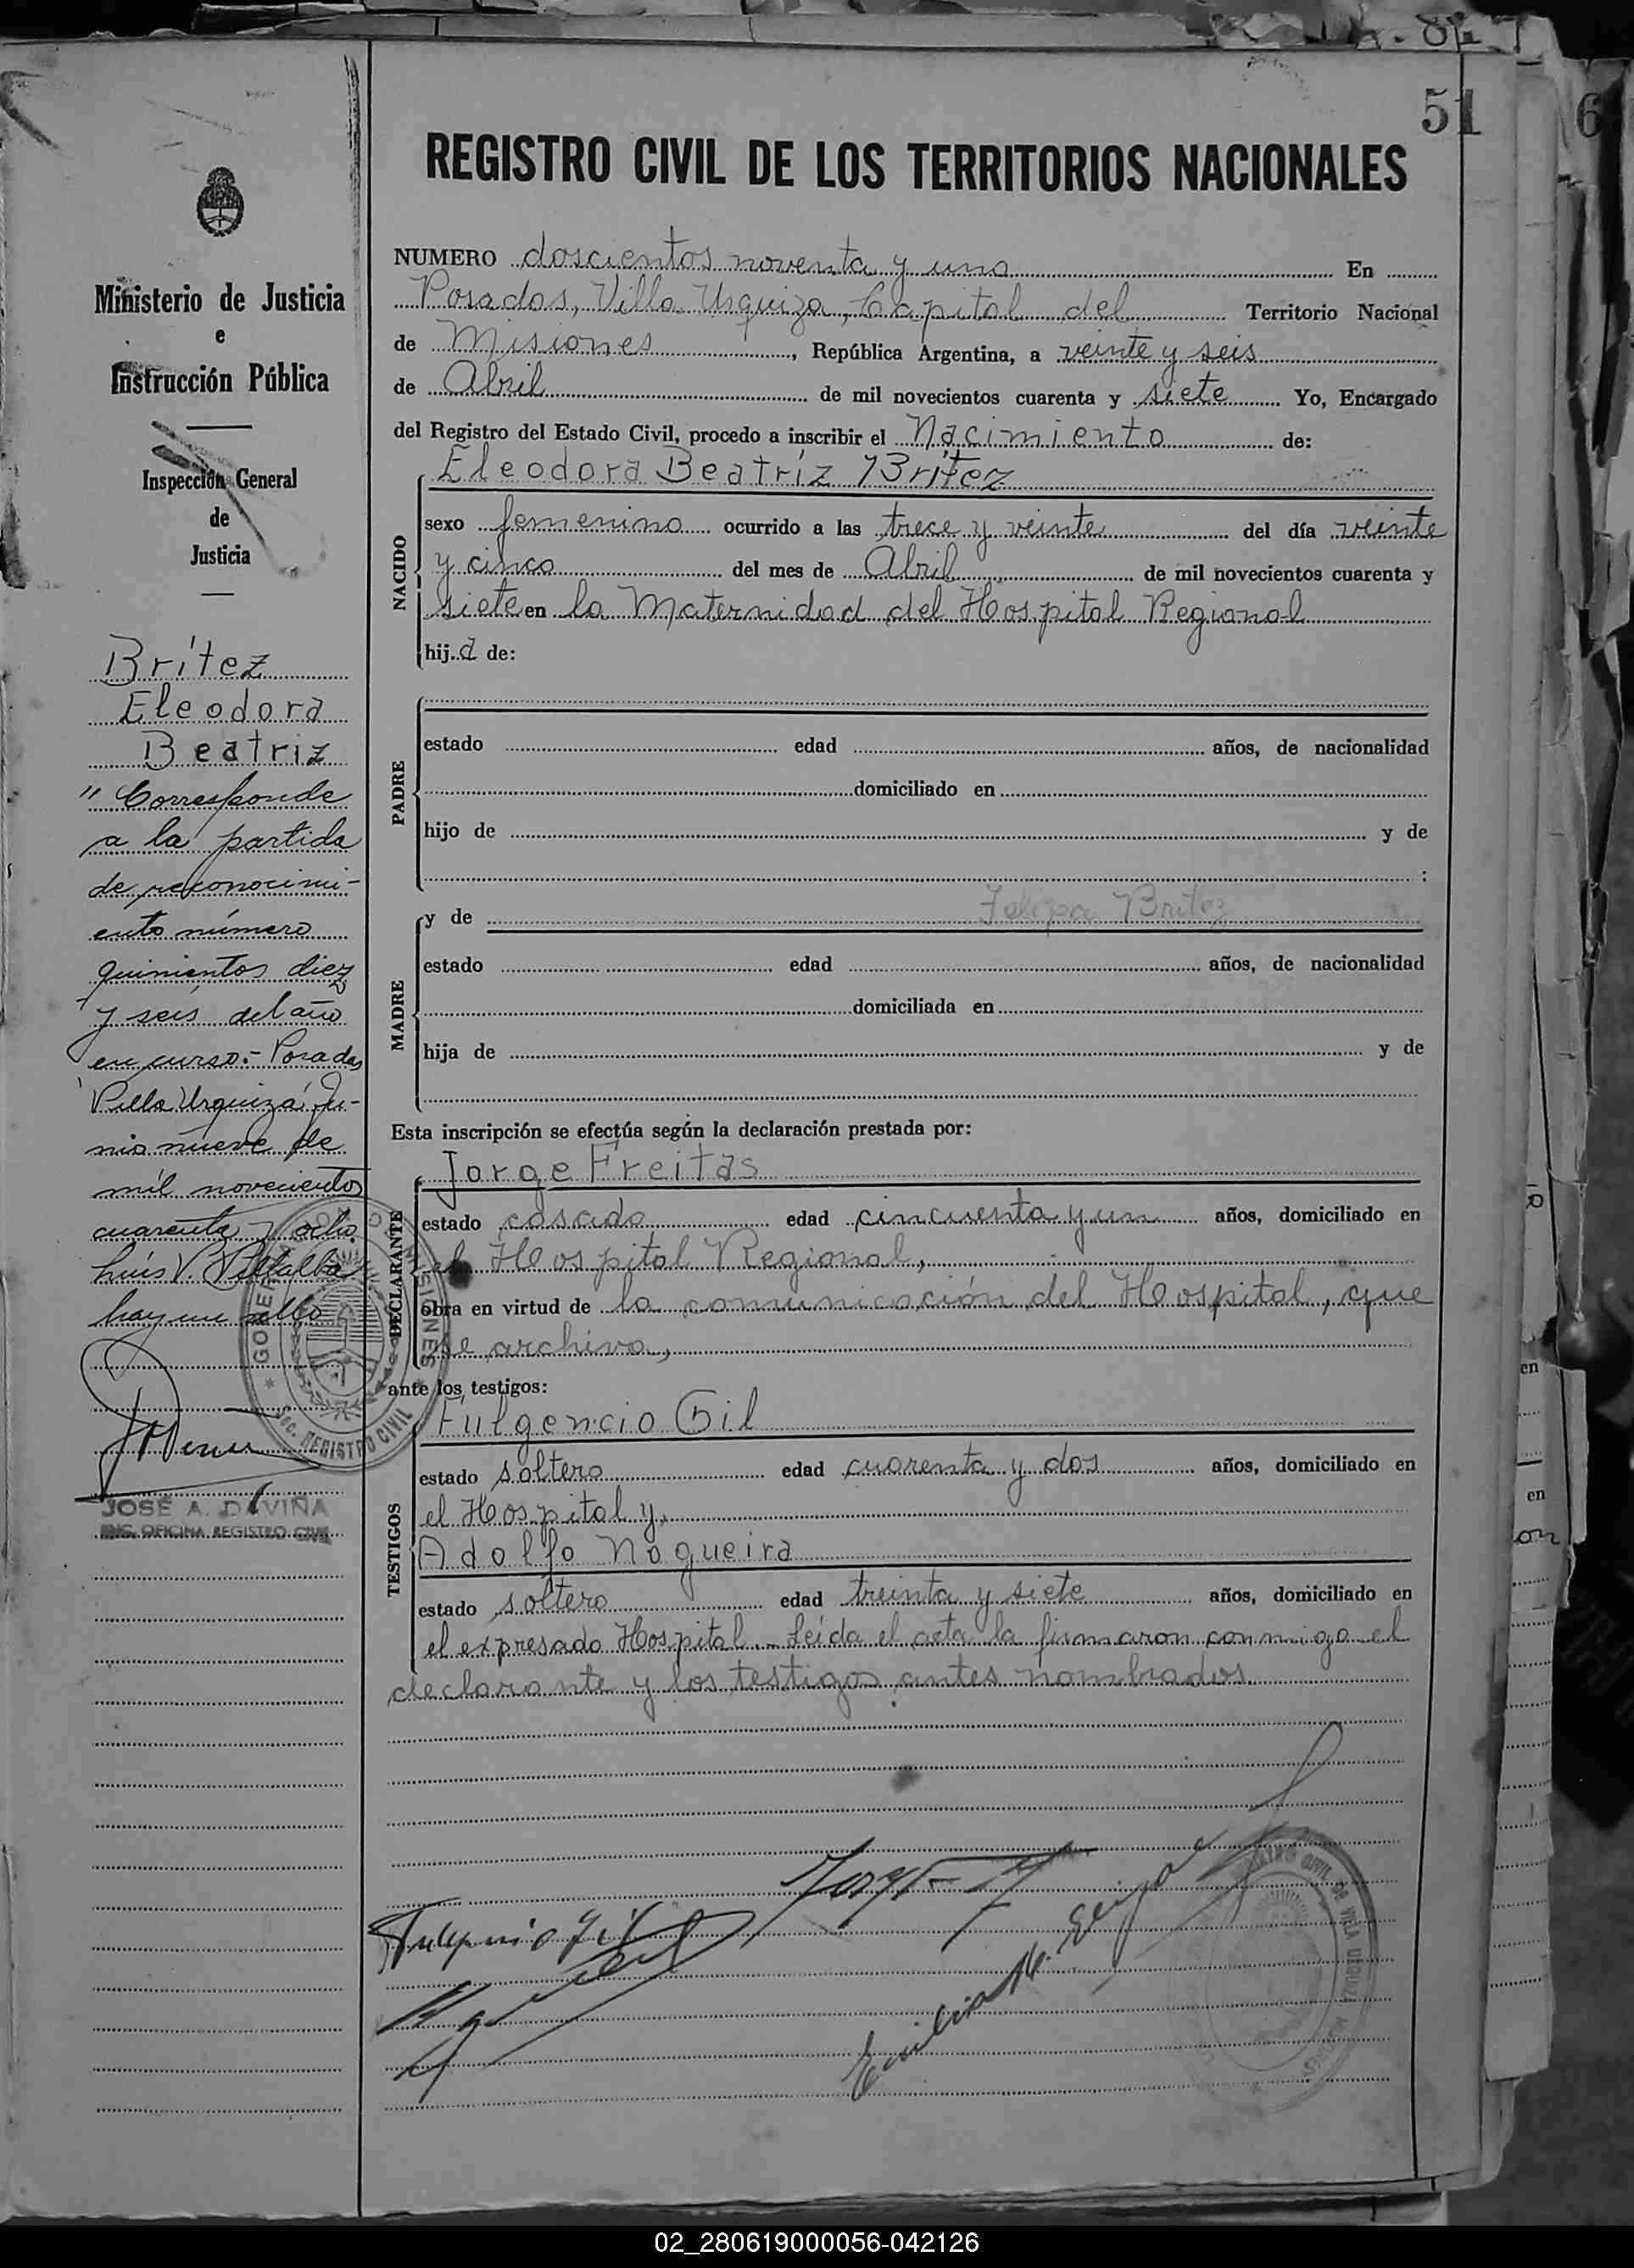 51
REGISTRO CIVIL DE LOS TERRITORIOS NACIONALES
Ministerio de Justicia
e
Instrucción Pública
Inspección General
de
Justicia
Brítez
Eleodora
Beatriz
"Corresponde
a la partida
de reconocimi-
ento número
quinientos diez
y seis del año
en curso.- Posadas
Villa Urquiza, Ju-
nio nueve de
mil novecientos
cuarenta y ocho.
Luis V.
hay un sello
JOSÉ A. DAVIÑA
ENC. OFICINA REGISTRO CIVIL
NUMERO doscientos noventa y uno En
Posadas, Villa Urquiza, Capital del Territorio Nacional
de Misiones, República Argentina, a veinte y seis
de Abril de mil novecientos cuarenta y siete Yo, Encargado
del Registro del Estado Civil, procedo a inscribir el Nacimiento de:
Eleodora Beatríz Brítez
NACIDO
sexo femenino ocurrido a las trece y veinte del día veinte
y cinco del mes de Abril de mil novecientos cuarenta y
siete en la Maternidad del Hospital Regional
hija de:
PADRE
estado edad años, de nacionalidad
domiciliado en
hijo de y de
:
MADRE
y de Felipa Britez
estado edad años, de nacionalidad
domiciliada en
hija de y de
Esta inscripción se efectúa según la declaración prestada por:
Jorge Freitas
DECLARANTE
estado casado edad cincuenta y un años, domiciliado en
el Hospital Regional,
obra en virtud de la comunicación del Hospital, que
se archiva,
ante los testigos:
Fulgencio Gil
TESTIGOS
estado soltero edad cuarenta y dos años, domiciliado en
el Hospital y,
Adolfo Nogueira
estado soltero edad treinta y siete años, domiciliado en
el expresado Hospital.- Leída el acta la firmaron conmigo el
declarante y los testigos antes nombrados.
Fulgencio Gil
SEC. REGISTRO CIVIL
02_280619000056-042126